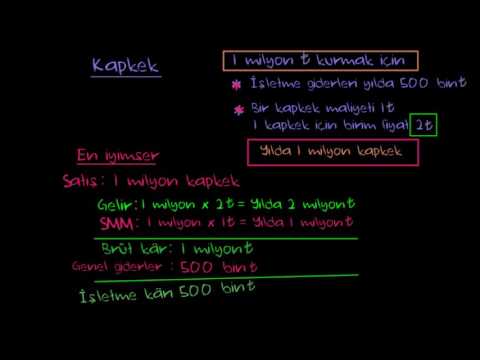 Kapkek
1 milyon t kurmak için
* İşletme giderleri yılda 500 bin t
* Bir kapkek maliyeti 1t
1 kapkek için birim fiyat 2t
Yılda 1 milyon kapkek
En iyimser
Satış: 1 milyon kapkek
Gelir: 1 milyon x 2t = Yılda 2 milyon t
SMM: 1 milyon x 1t = Yılda 1 milyon t
Brüt kâr: 1 milyon t
Genel giderler : 500 bin t
İşletme kârı 500 bin t